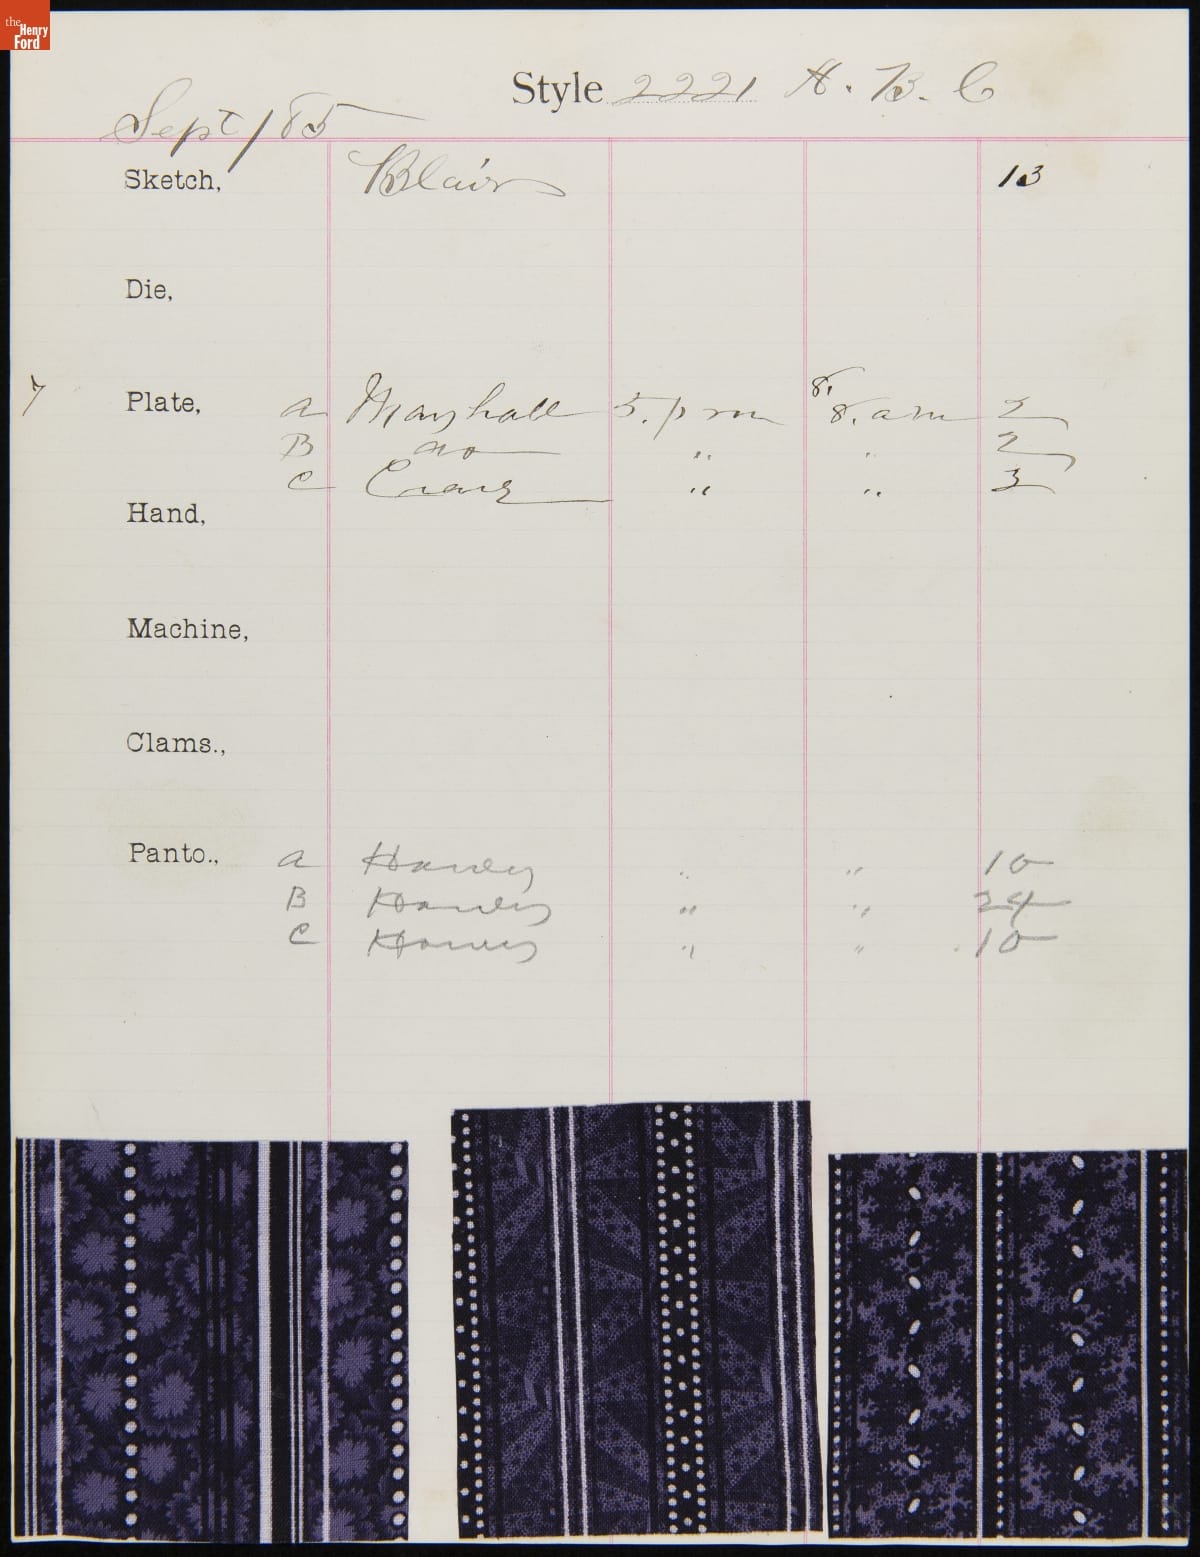 the Henry Ford
Style 2221 A. B. C
Sept / 85
Sketch, Blair 13
Die,
7 Plate, a Marshall 5. p m 8. 8. a m 2
B do " " 2
C Craig " " 3
Hand,
Machine,
Clams.,
Panto., a Harvey " " 10
B Harvey " " 24
C Harvey " " 10